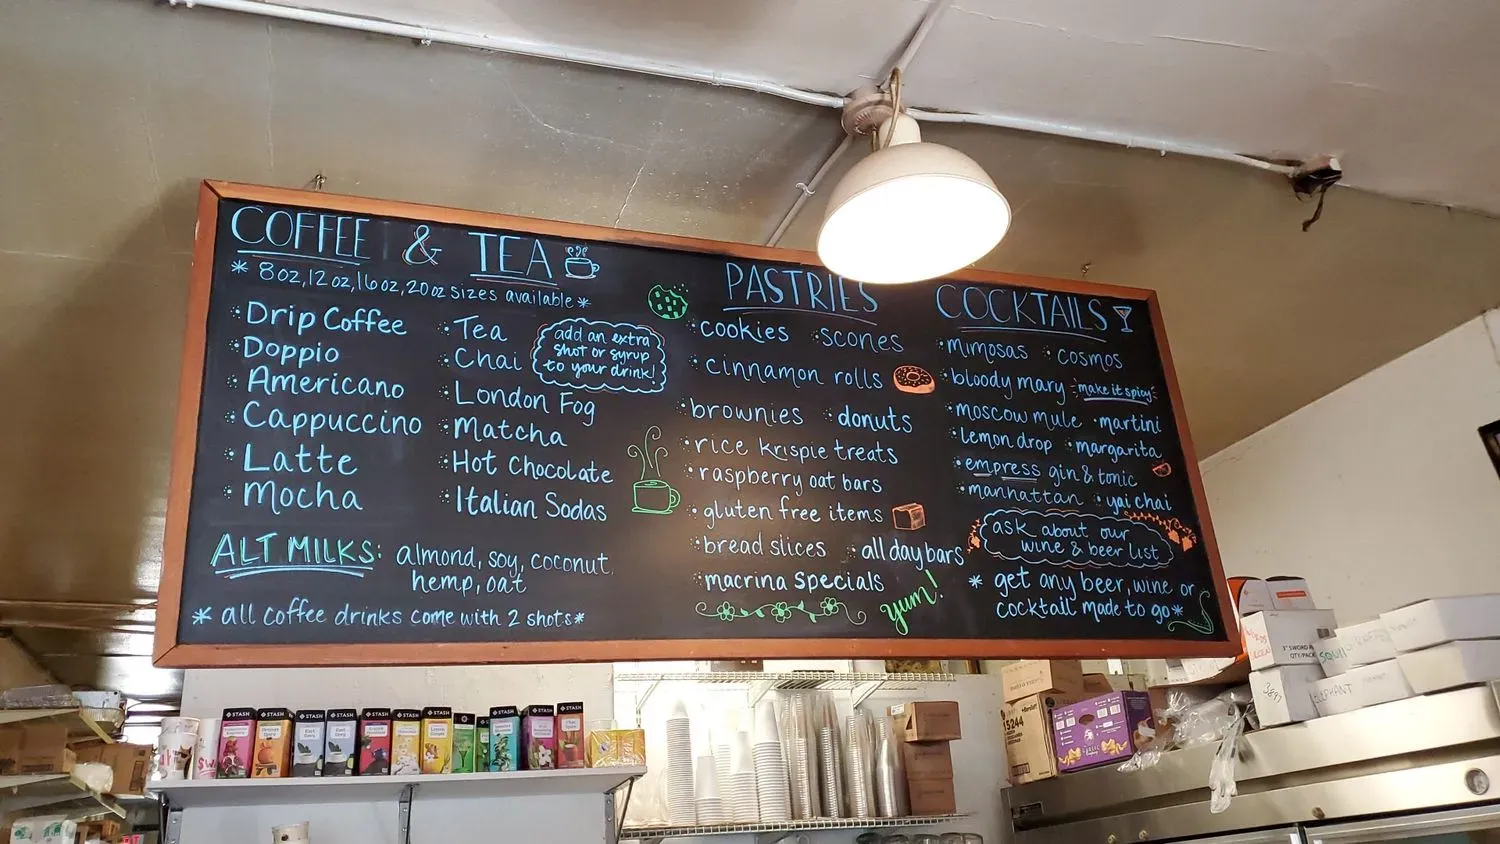 COFFEE & TEA
* 8oz, 12oz, 16oz, 20oz sizes available *
Drip Coffee
Doppio
Americano
Cappuccino
Latte
Mocha
Tea
Chai
London Fog
Matcha
Hot Chocolate
Italian Sodas
add an extra
shot or syrup
to your drink!
ALT MILKS: almond, soy, coconut,
hemp, oat
* all coffee drinks come with 2 shots *
PASTRIES
cookies scones
cinnamon rolls
brownies donuts
rice krispie treats
raspberry oat bars
gluten free items
bread slices all day bars
macrina specials
yum!
COCKTAILS
mimosas cosmos
bloody mary make it spicy
moscow mule martini
lemon drop margarita
empress gin & tonic
manhattan yai chai
ask about our
wine & beer list
* get any beer, wine or
cocktail made to go *
STASH
STASH
STASH
STASH
STASH
STASH
STASH
STASH
STASH
STASH
5244
ELEPHANT